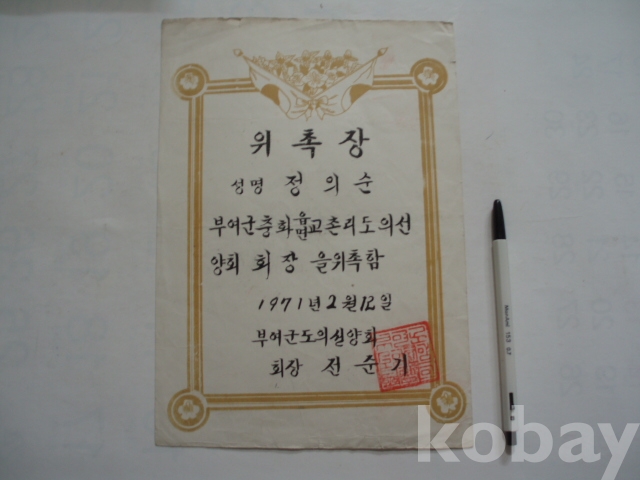 위촉장
성명 정의순
부여군충화읍면교촌리도의선
양회 회장 을위촉함
1971년 2월 12일
부여군도의선양회
회장 전순기
kobay